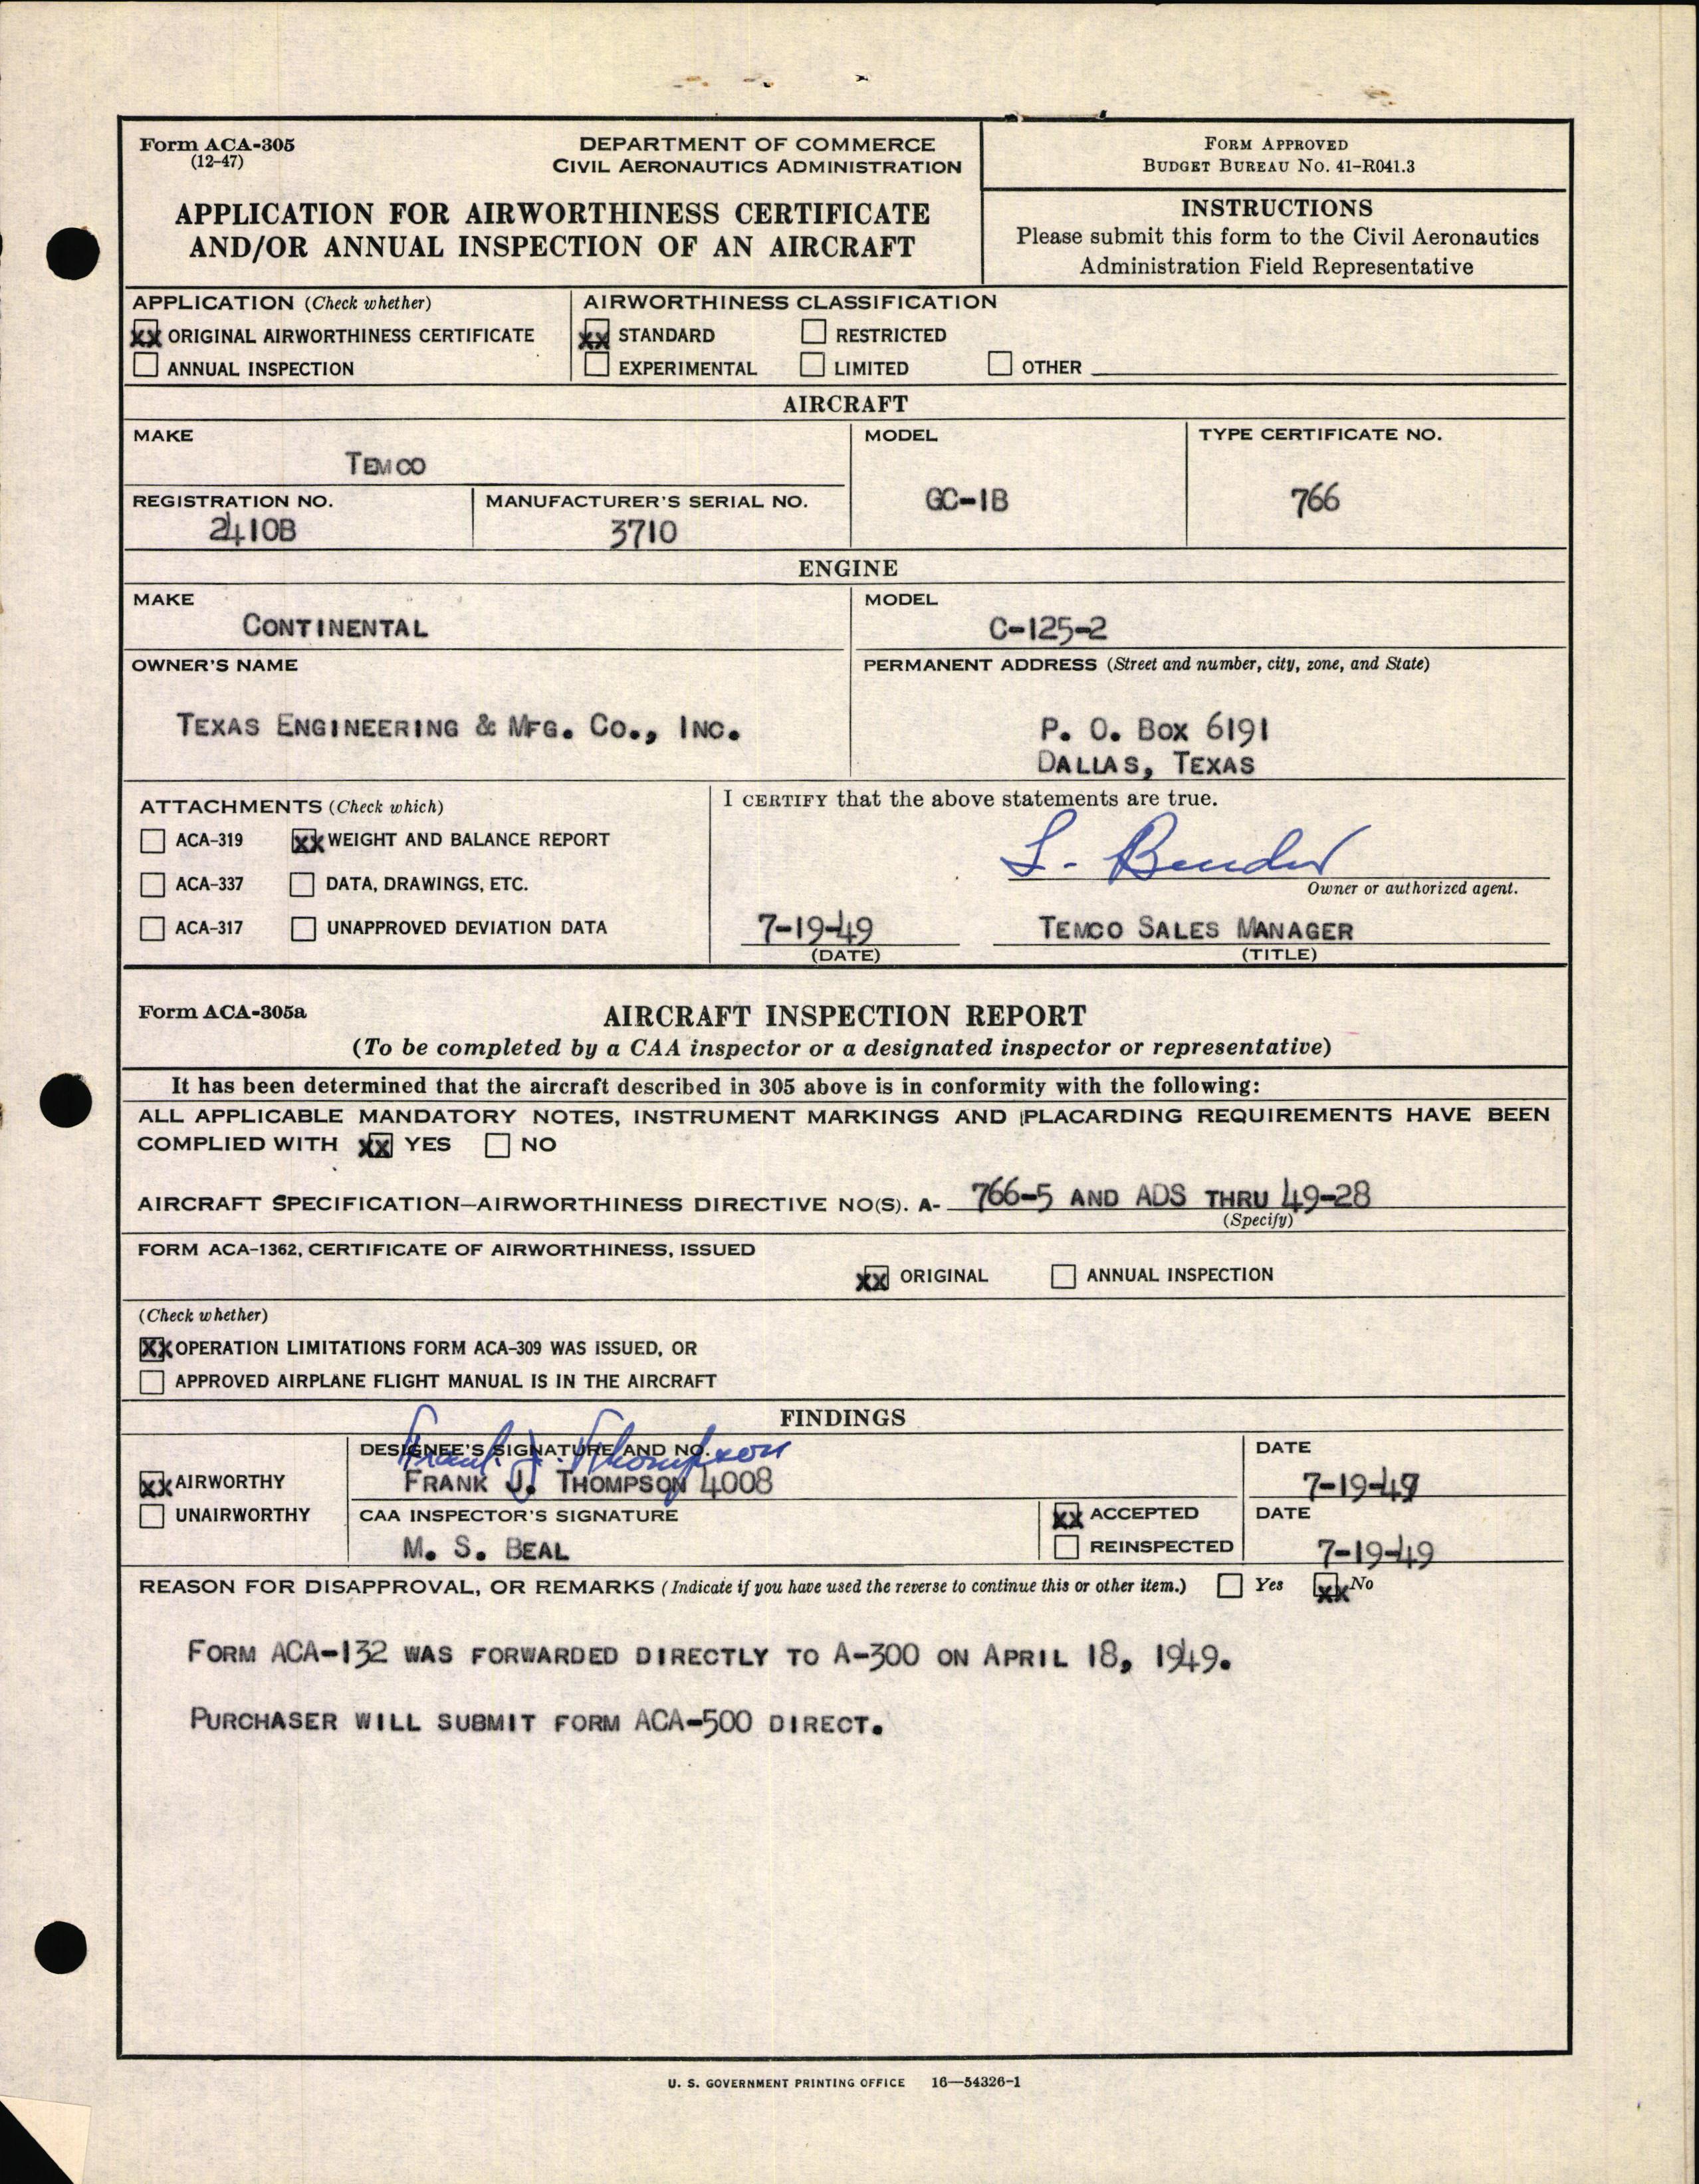 Form ACA-305
(12-47)
DEPARTMENT OF COMMERCE
CIVIL AERONAUTICS ADMINISTRATION
APPLICATION FOR AIRWORTHINESS CERTIFICATE
AND/OR ANNUAL INSPECTION OF AN AIRCRAFT
FORM APPROVED
BUDGET BUREAU NO. 41-R041.3
INSTRUCTIONS
Please submit this form to the Civil Aeronautics
Administration Field Representative
APPLICATION (Check whether)
XX ORIGINAL AIRWORTHINESS CERTIFICATE
ANNUAL INSPECTION
AIRWORTHINESS CLASSIFICATION
XX STANDARD RESTRICTED
EXPERIMENTAL LIMITED OTHER
AIRCRAFT
MAKE
TEMCO
MODEL
GC-1B
TYPE CERTIFICATE NO.
766
REGISTRATION NO.
2410B
MANUFACTURER'S SERIAL NO.
3710
ENGINE
MAKE
CONTINENTAL
MODEL
C-125-2
OWNER'S NAME
TEXAS ENGINEERING & MFG. CO., INC.
PERMANENT ADDRESS (Street and number, city, zone, and State)
P. O. BOX 6191
DALLAS, TEXAS
ATTACHMENTS (Check which)
ACA-319 XX WEIGHT AND BALANCE REPORT
ACA-337 DATA, DRAWINGS, ETC.
ACA-317 UNAPPROVED DEVIATION DATA
I CERTIFY that the above statements are true.
L. Bender
Owner or authorized agent.
7-19-49 TEMCO SALES MANAGER
(DATE) (TITLE)
Form ACA-305a
AIRCRAFT INSPECTION REPORT
(To be completed by a CAA inspector or a designated inspector or representative)
It has been determined that the aircraft described in 305 above is in conformity with the following:
ALL APPLICABLE MANDATORY NOTES, INSTRUMENT MARKINGS AND PLACARDING REQUIREMENTS HAVE BEEN
COMPLIED WITH XX YES NO
AIRCRAFT SPECIFICATION—AIRWORTHINESS DIRECTIVE NO(S). A- 766-5 AND ADS THRU 49-28
(Specify)
FORM ACA-1362, CERTIFICATE OF AIRWORTHINESS, ISSUED
XX ORIGINAL ANNUAL INSPECTION
(Check whether)
XX OPERATION LIMITATIONS FORM ACA-309 WAS ISSUED, OR
APPROVED AIRPLANE FLIGHT MANUAL IS IN THE AIRCRAFT
FINDINGS
XX AIRWORTHY
UNAIRWORTHY
DESIGNEE'S SIGNATURE AND NO.
Frank J. Thompson
FRANK J. THOMPSON 4008
DATE
7-19-49
CAA INSPECTOR'S SIGNATURE
M. S. BEAL
XX ACCEPTED
REINSPECTED
DATE
7-19-49
REASON FOR DISAPPROVAL, OR REMARKS (Indicate if you have used the reverse to continue this or other item.) Yes XX No
FORM ACA-132 WAS FORWARDED DIRECTLY TO A-300 ON APRIL 18, 1949.
PURCHASER WILL SUBMIT FORM ACA-500 DIRECT.
U. S. GOVERNMENT PRINTING OFFICE 16—54326-1